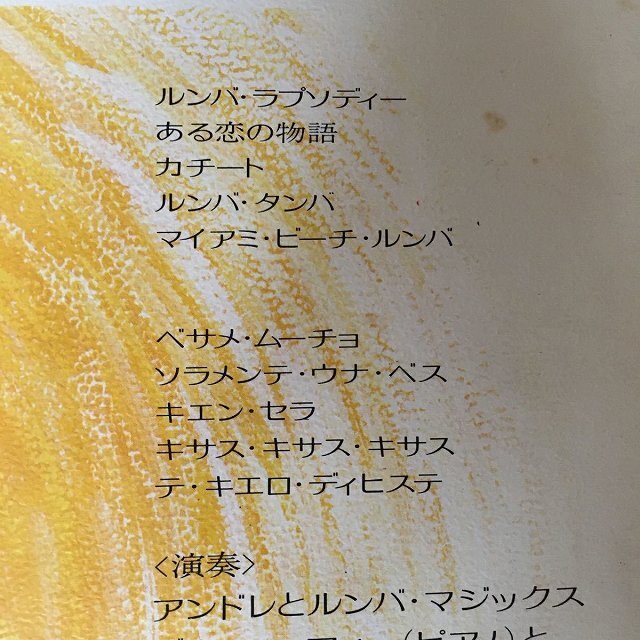 ルンバ・ラプソディー
ある恋の物語
カチート
ルンバ・タンバ
マイアミ・ビーチ・ルンバ
ベサメ・ムーチョ
ソラメンテ・ウナ・ベス
キエン・セラ
キサス・キサス・キサス
テ・キエロ・ディヒステ
<演奏>
アンドレとルンバ・マジックス
(ピアノ)と